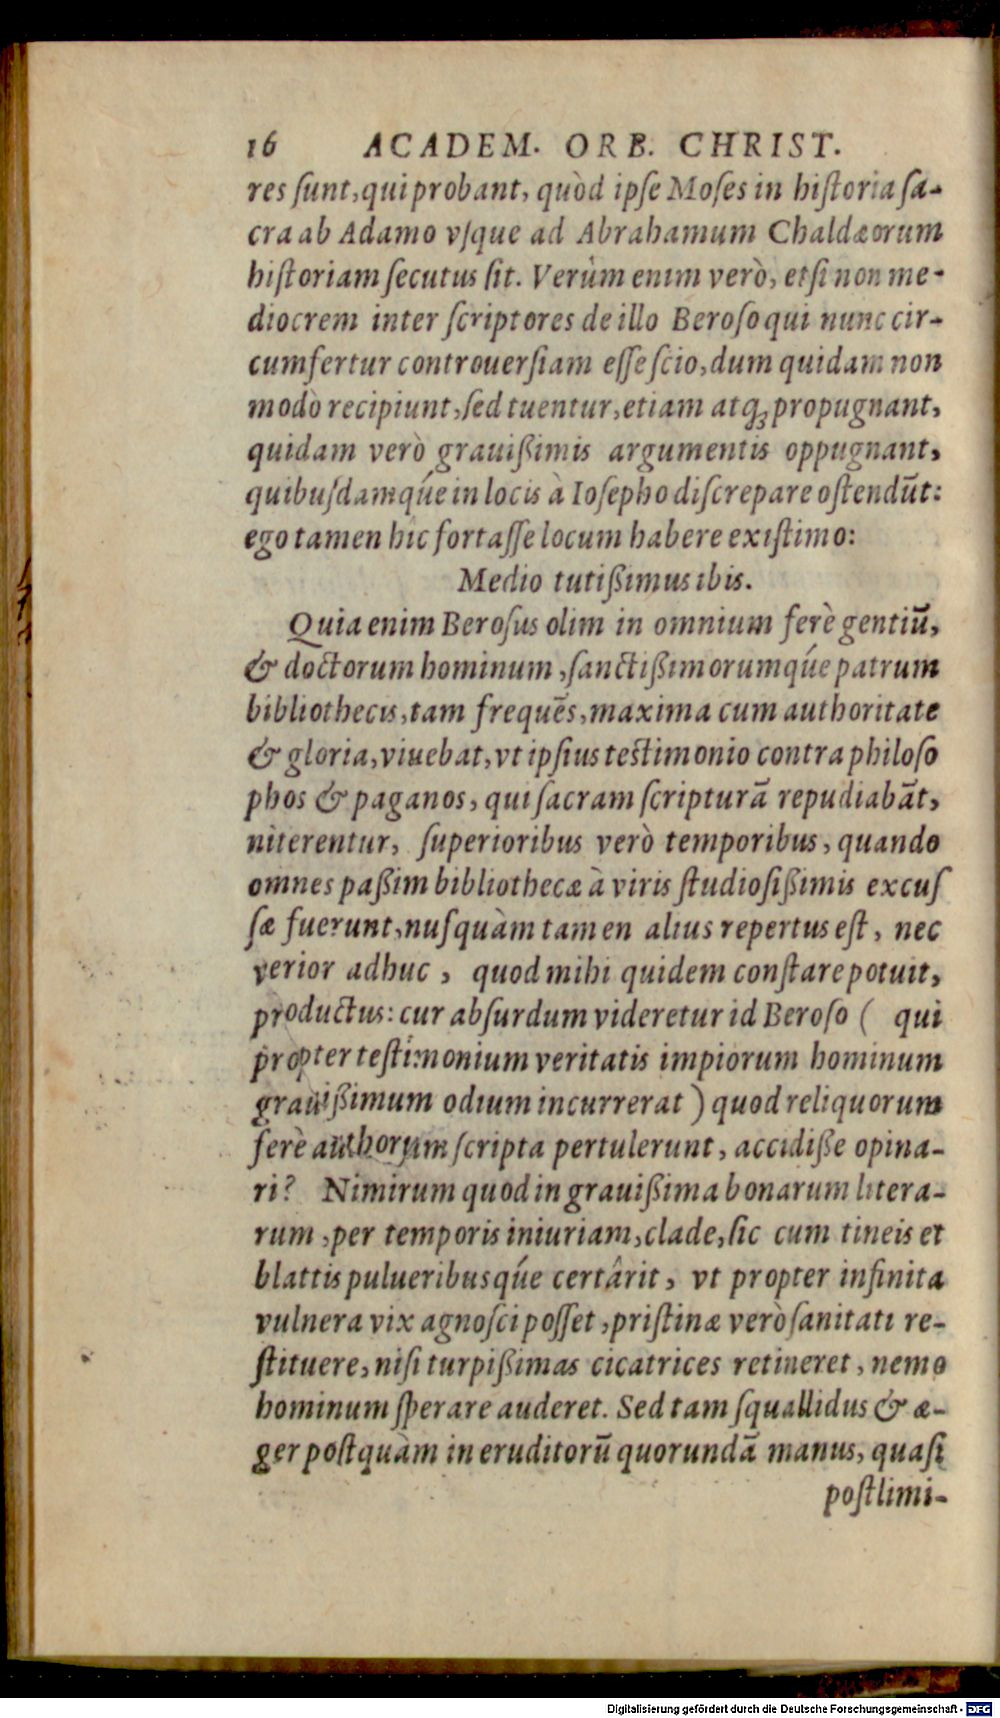 16 ACADEM. ORB. CHRIST.
res ſunt, qui probant, quòd ipſe Moſes in hiſtoria ſa-
cra ab Adamo vſque ad Abrahamum Chaldæorum
hiſtoriam ſecutus ſit. Verùm enim verò, etſi non me-
diocrem inter ſcriptores de illo Beroſo qui nunc cir-
cumfertur controuerſiam eſſe ſcio, dum quidam non
modò recipiunt, ſed tuentur, etiam atq́ꝫ propugnant,
quidam verò grauißimis argumentis oppugnant,
quibuſdamq́ue in locis à Ioſepho diſcrepare oſtendūt:
ego tamen hîc fortaſſe locum habere exiſtimo:
Medio tutißimus ibis.
Quia enim Beroſus olim in omnium ferè gentiū,
& doctorum hominum, ſanctißimorumq́ue patrum
bibliothecis, tam frequēs, maxima cum authoritate
& gloria, viuebat, vt ipſius teſtimonio contra philoſo
phos & paganos, qui ſacram ſcripturā repudiabāt,
niterentur, ſuperioribus verò temporibus, quando
omnes paßim bibliothecæ à viris ſtudioſißimis excuſ
ſæ fuerunt, nuſquàm tamen alius repertus eſt, nec
verior adhuc, quod mihi quidem conſtare potuit,
productus: cur abſurdum videretur id Beroſo ( qui
propter teſtimonium veritatis impiorum hominum
grauißimum odium incurrerat ) quod reliquorum
ferè authorum ſcripta pertulerunt, accidiße opina-
ri? Nimirum quod in grauißima bonarum litera-
rum, per temporis iniuriam, clade, ſic cum tineis et
blattis pulueribusq́ue certârit, vt propter infinita
vulnera vix agnoſci poſſet, priſtinæ verò ſanitati re-
ſtituere, niſi turpißimas cicatrices retineret, nemo
hominum ſperare auderet. Sed tam ſquallidus & æ-
ger poſtquàm in eruditorū quorundā manus, quaſi
poſtlimi-
Digitalisierung gefördert durch die Deutsche Forschungsgemeinschaft - DFG